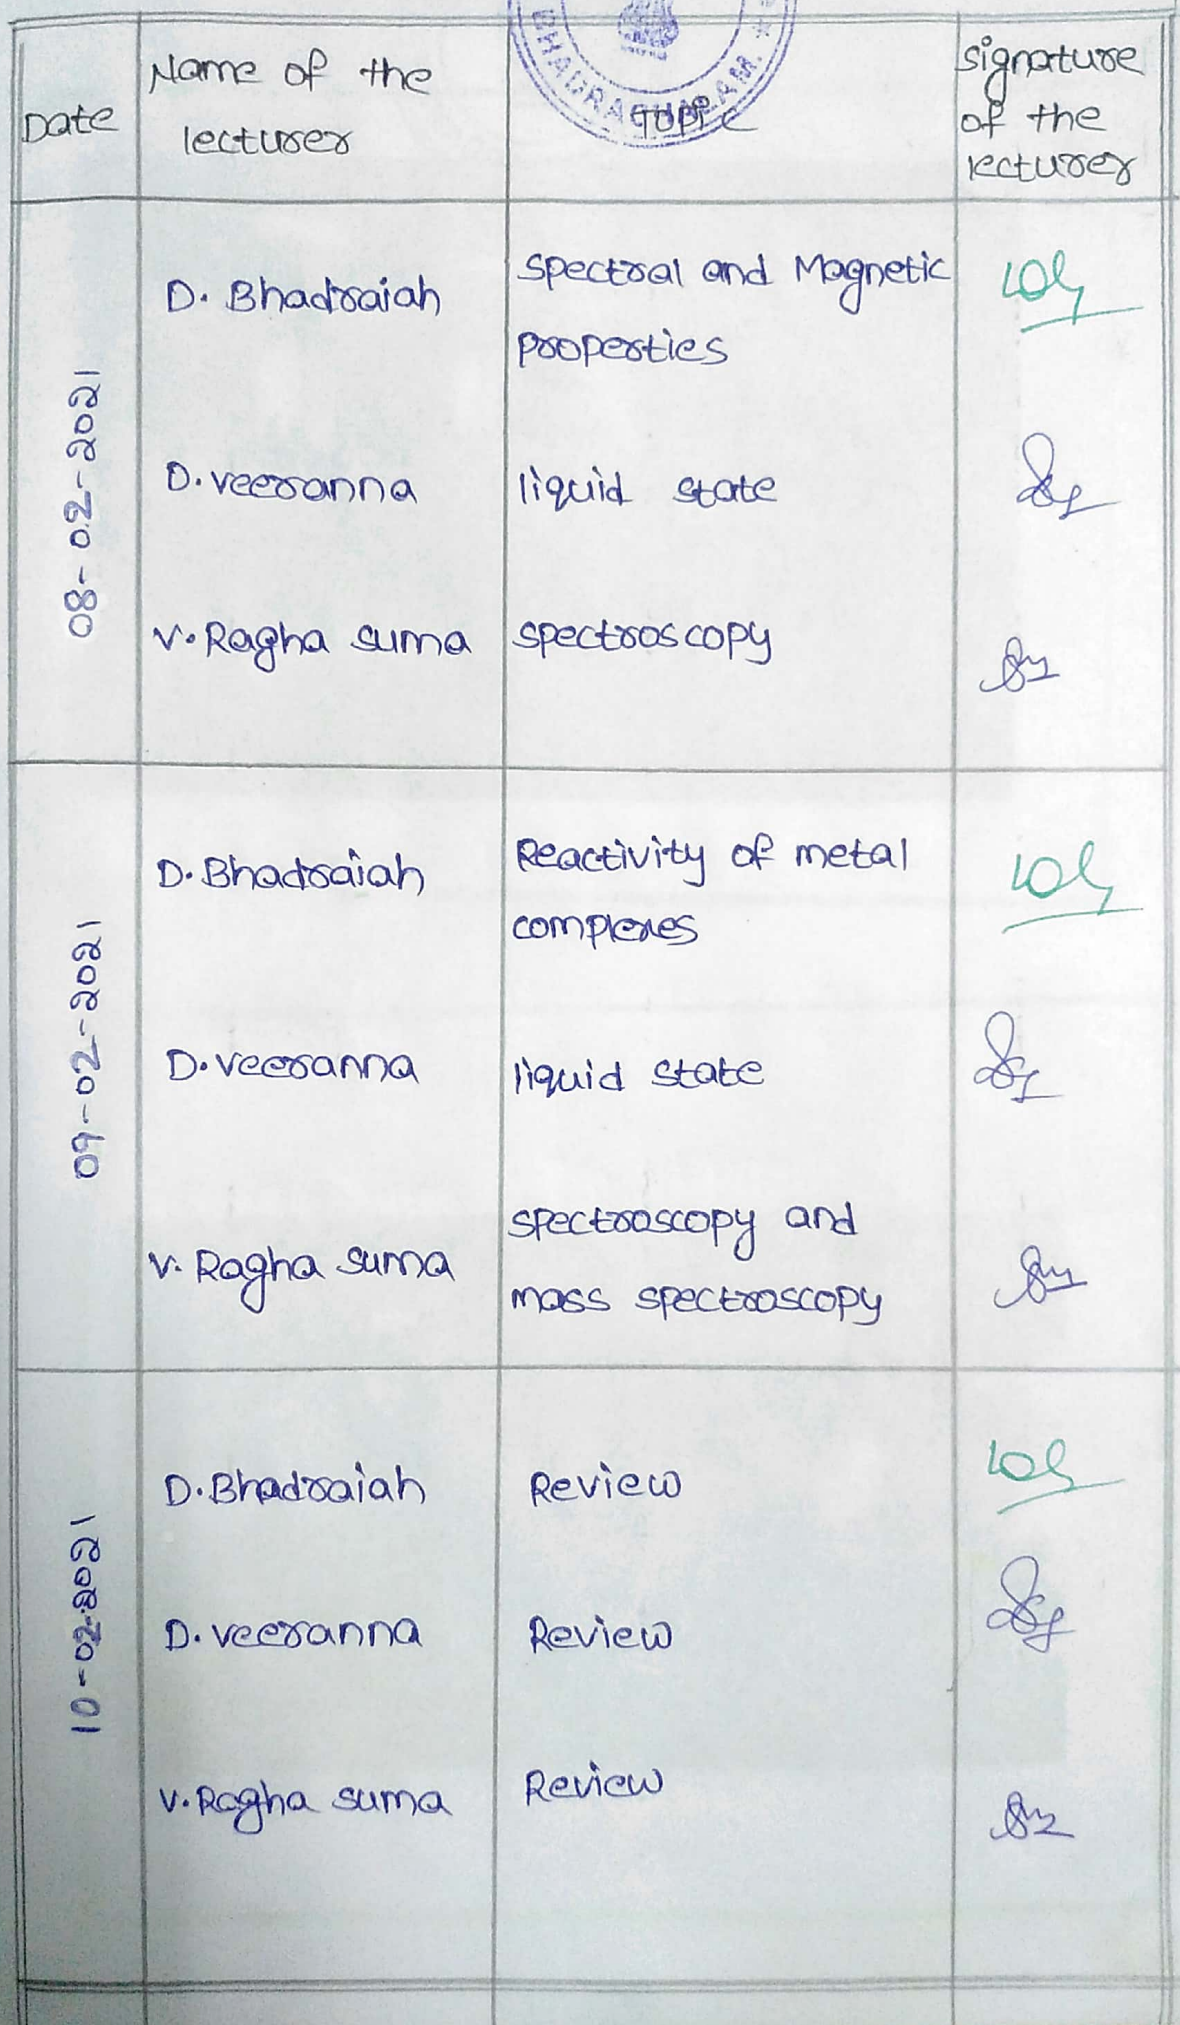 BHADRACHALAM. *
Date
Name of the
lecturer
Topic
signature
of the
lecturer
08-02-2021
D. Bhadraiah
spectral and Magnetic
properties
D. veeranna
liquid state
V. Ragha suma
spectroscopy
09-02-2021
D. Bhadraiah
Reactivity of metal
complexes
D. veeranna
liquid state
V. Ragha suma
spectroscopy and
mass spectroscopy
10-02-2021
D. Bhadraiah
Review
D. veeranna
Review
V. Ragha suma
Review